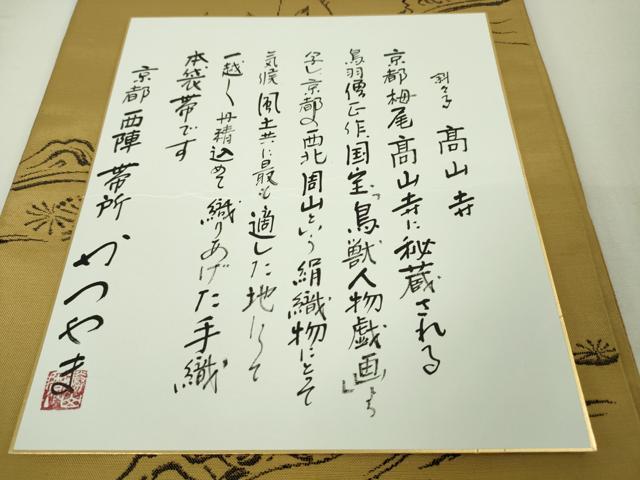 高山寺
京都栂尾高山寺に秘蔵される
鳥羽僧正作国宝「鳥獣人物戯画」より
京都の西北周山という絹織物にとって
気候風土共に最も適した地にて
一越し丹精込めて織りあげた手織
本袋帯です
京都西陣帯所かつやま